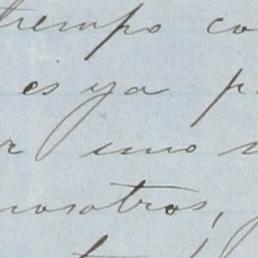 tiempo co
es ya p
r uno s
nosotros,